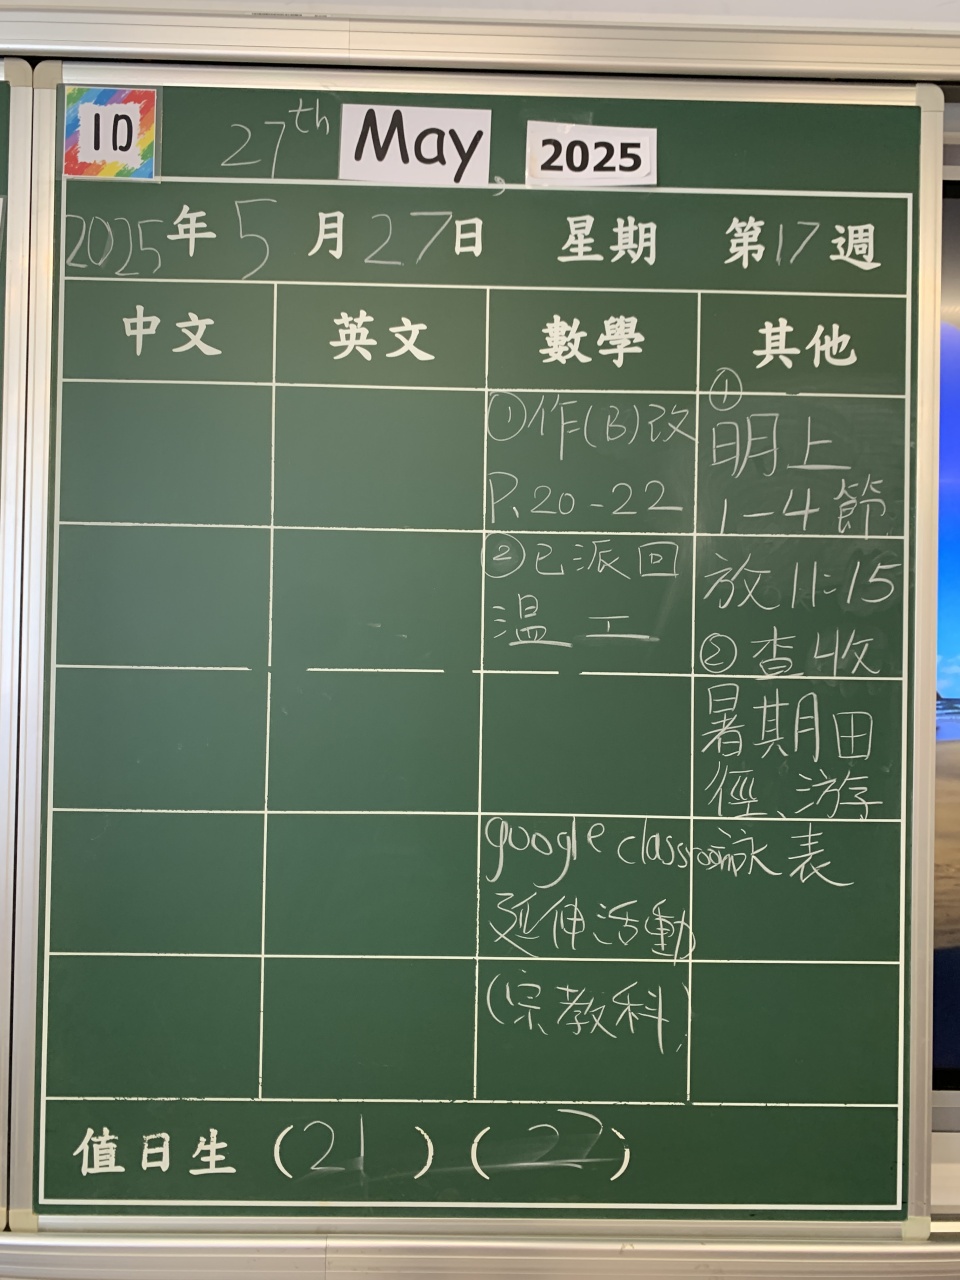 1D 27th May, 2025
2025年5月27日 星期 第17週
中文 英文 數學 其他
①作(B)改
P.20-22
②已派回
溫工
google classroom
延伸活動
(宗教科)
①
明上
1-4節
放11:15
②查收
暑期田
徑、游
泳表
值日生 (21) (22)